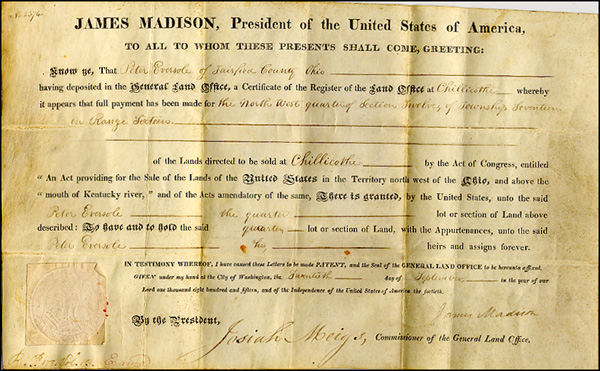 JAMES MADISON, President of the United States of America,
TO ALL TO WHOM THESE PRESENTS SHALL COME, GREETING:
Know ye, That Peter Eversole of Fairfield County Ohio
having deposited in the General Land Office, a Certificate of the Register of the Land Office at Chillicothe whereby
it appears that full payment has been made for the North West quarter of Section Twelve of Township Seventeen
in Range Sixteen
of the Lands directed to be sold at Chillicothe by the Act of Congress, entitled
“An Act providing for the Sale of the Lands of the United States in the Territory north west of the Ohio, and above the
“mouth of Kentucky river,” and of the Acts amendatory of the same, There is granted, by the United States, unto the said
Peter Eversole the quarter lot or section of Land above
described: To have and to hold the said quarter lot or section of Land, with the Appurtenances, unto the said
Peter Eversole his heirs and assigns forever.
IN TESTIMONY WHEREOF, I have caused these Letters to be made PATENT, and the Seal of the GENERAL LAND OFFICE to be hereunto affixed.
GIVEN under my hand at the City of Washington, the Twentieth day of September in the year of our
Lord one thousand eight hundred and fifteen, and of the Independence of the United States of America the fortieth.
James Madison
By the President,
Josiah Meigs, Commissioner of the General Land Office.